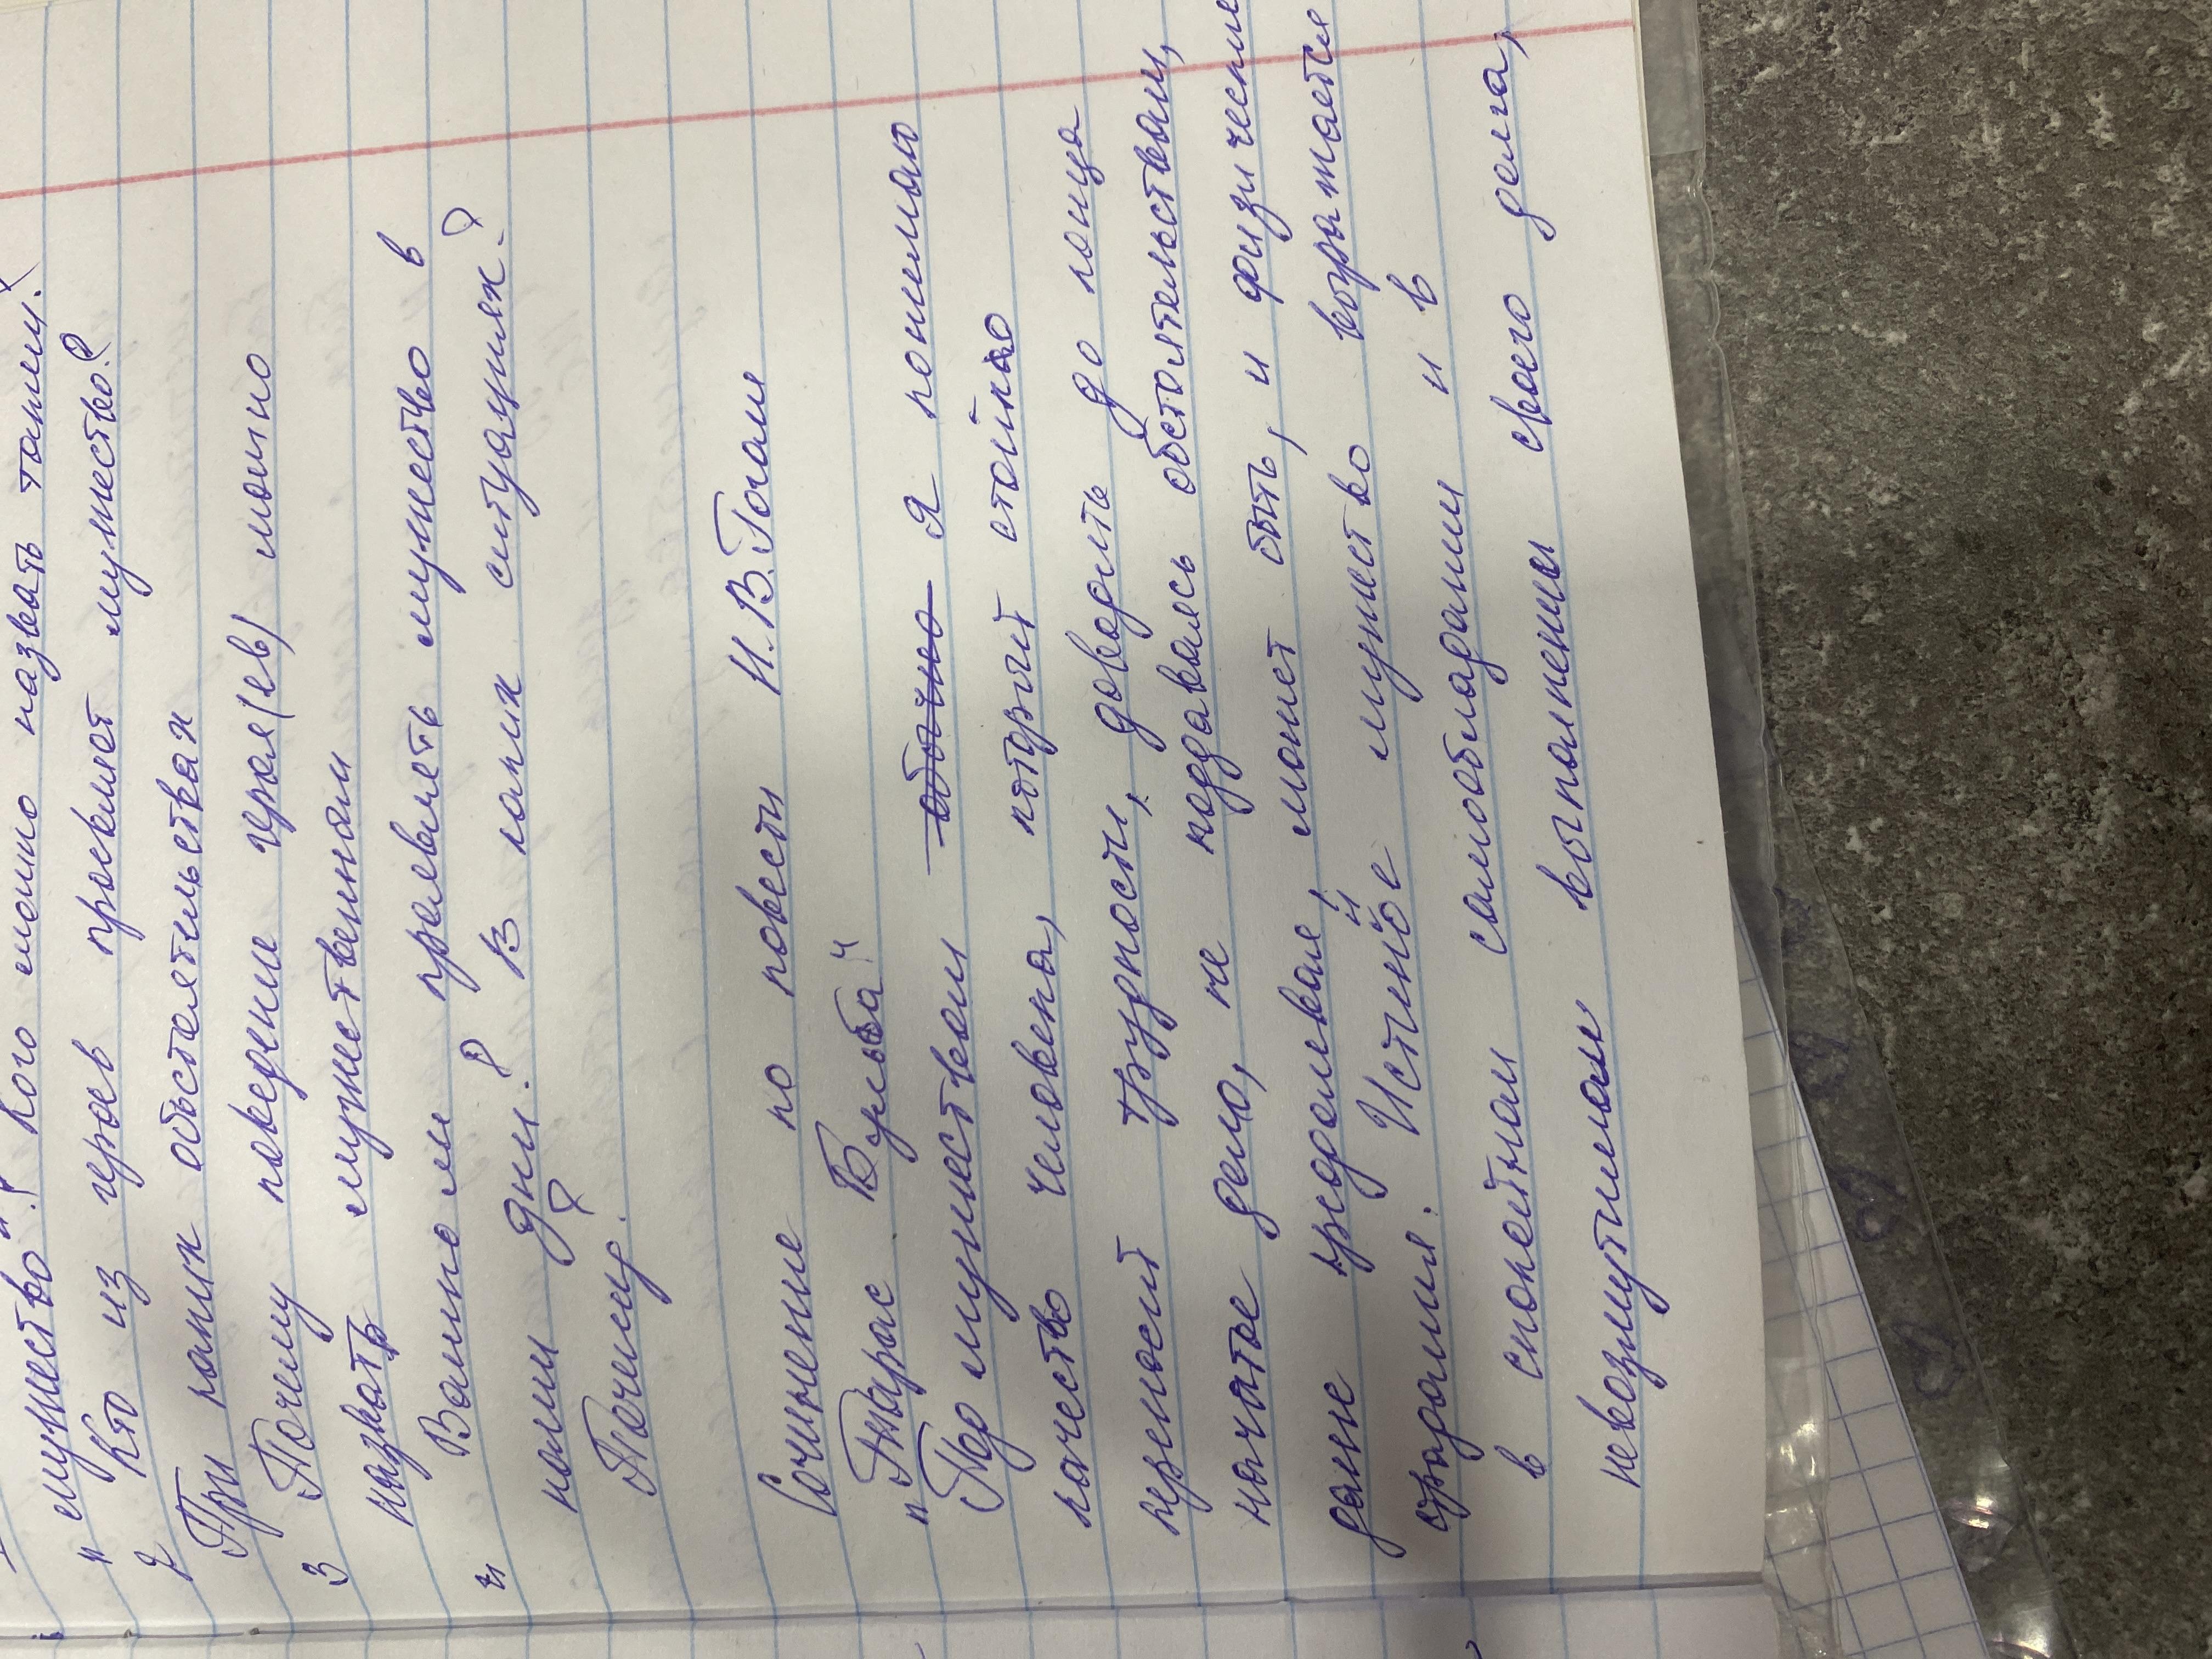 мужество"? Кого можно назвать таким?
" Кто из героев проявляет мужество?
2 При каких обстоятельствах
3 Почему поведение героя(ев) можно
назвать мужественным
4 Важно ли проявлять мужество в
наши дни? В каких ситуациях?
Почему?
Сочинение по повести Н.В.Гоголя
"Тарас Бульба"
Под мужеством я понимаю
качество человека, который стойко
переносит трудности, доводить до конца
начатое дело, не поддаваясь обстоятельствам,
даже преодолевая, может быть, и физические
страдания. Истиное мужество выражается
в спокойном самообладании и в
невозмутимом выполнении своего долга,